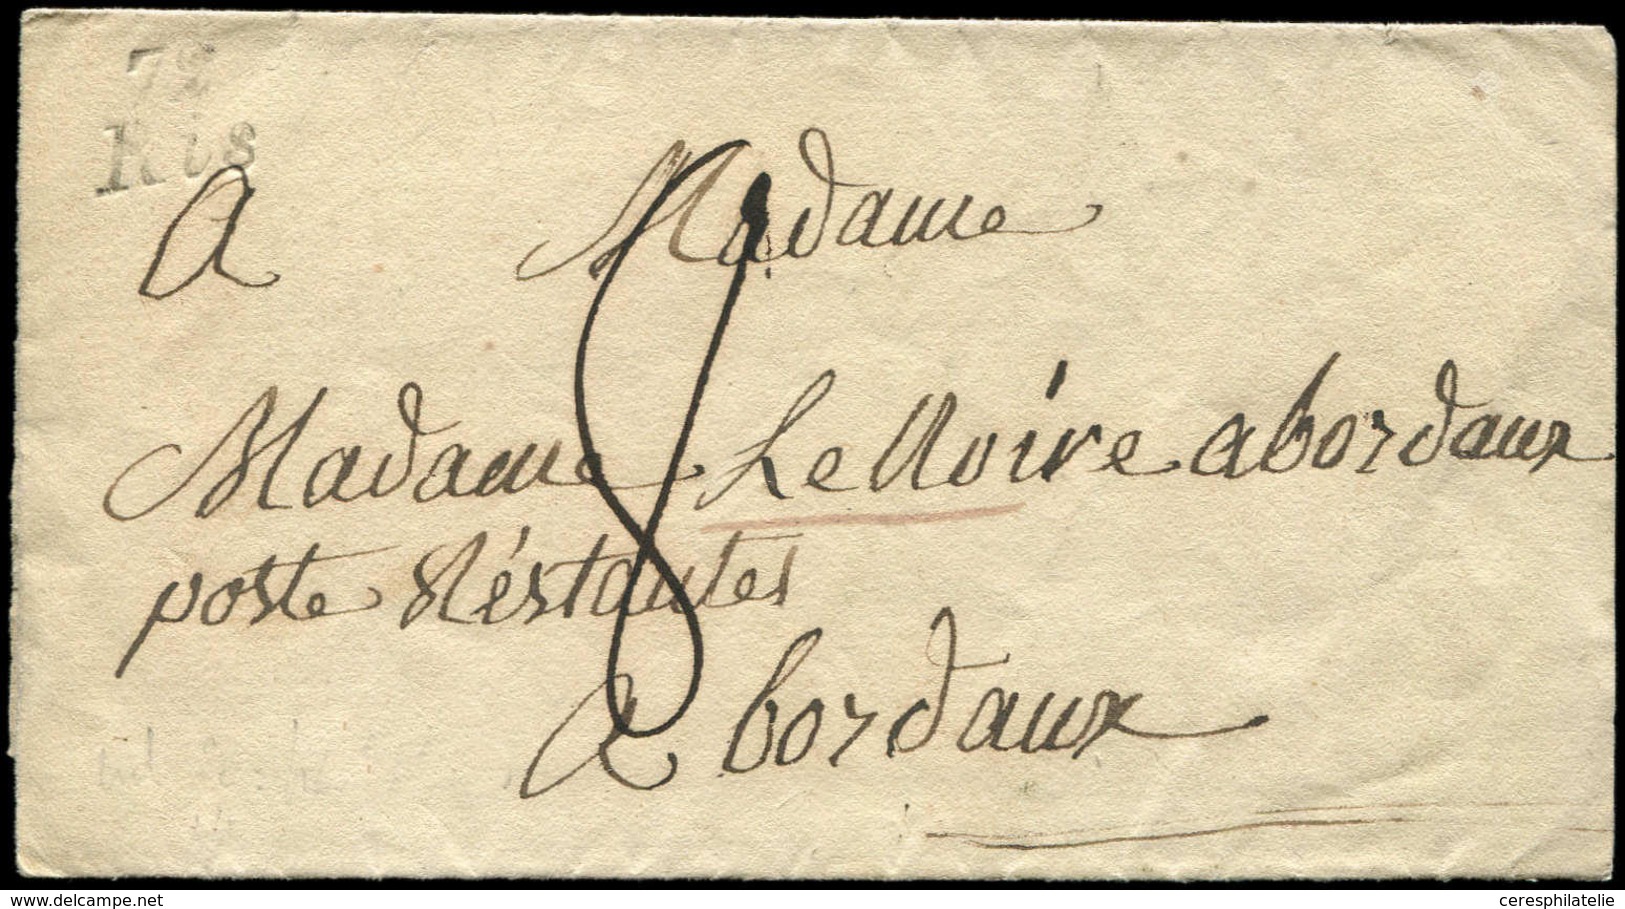 72
Ris
A Madame
Madame Le Noire a bordaux
poste Réstantes
a bordaux
8
delcampe.net
ceresphilatelie